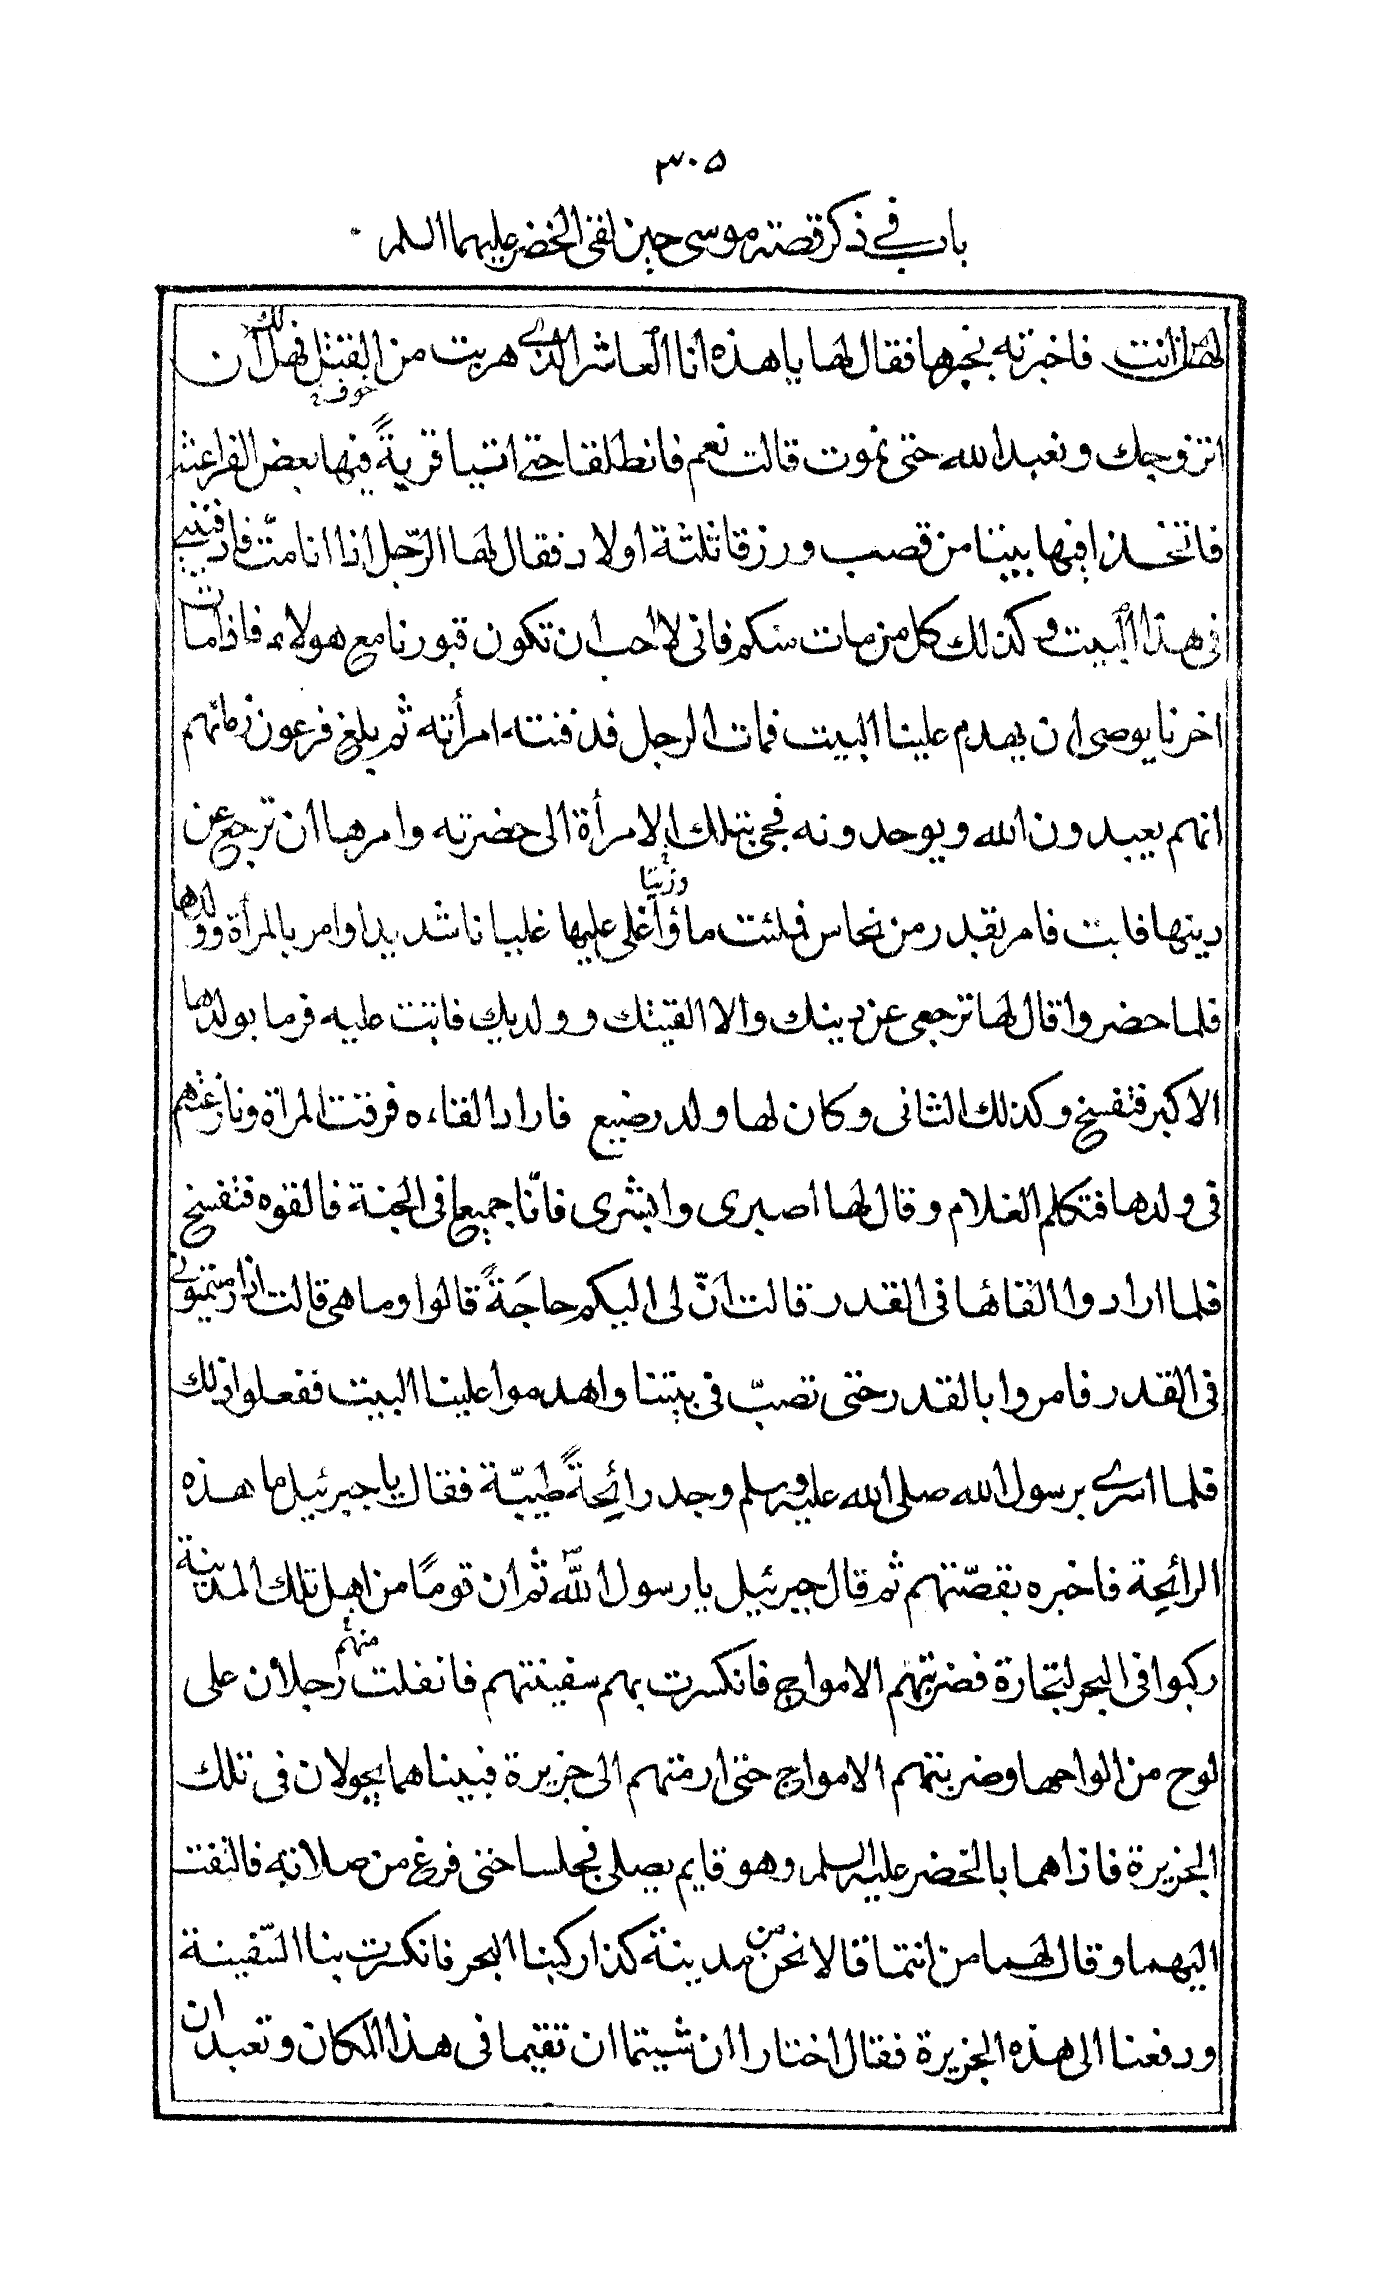 ٣٠٥
باب في ذكر قصته موسى حين لقى الخضر عليهما السلم
لها من انت فاخبرته بخبرها فقال لها يا هذه انا العاشر الذى هربت من القتل فهل لك ان
خوف
اتزوجك ونعبد الله حتى نموت قالت نعم فانطلقا حتى اتيا قريةً فيها بعض الفراعنة
فاتخذا فيها بيتا من قصب ورزقا ثلثة اولاد فقال لها الرّجل اذا انا متّ فادفنينى
فى هذا البيت وكذلك كل من مات منكم فانى لا احب ان تكون قبورنا مع هولاء فاذا مات
اخرنا يوصى ان يهدم علينا البيت فمات الرجل فدفنته امرأته ثم بلغ فرعون زمانهم
انهم يعبدون الله ويوحدونه فجئ بتلك الامرأة الى حضرته وامرها ان ترجع عن
وزيتا
دينها فابت فامر بقدر من نحاس فملئت ماؤ اغلى عليها غليانا شديدا وامر بالمرأة وولدها
فلما حضروا قال لها ترجعى عن دينك والا القيتك وولديك فابت عليه فرما بولدها
الاكبر فتفسخ وكذلك الثانى وكان لها ولد رضيع فاراد القاءه فرقت المرأة ونازعتهم
فى ولدها فتكلم الغلام وقال لها اصبرى وابشرى فانّا جميعا فى الجنة فالقوه فتفسخ
فلما ارادوا القائها فى القدر قالت انّ لى اليكم حاجَةً قالوا وما هى قالت اذا رميتمونى
فى القدر فامروا بالقدر حتى تصبّ فى بيتنا واهدموا علينا البيت ففعلوا ذلك
فلما اسرى برسول الله صلى الله عليه وسلم وجد رائحةً طيبّة فقال يا جبرئيل ما هذه
الرائحة فاخبره بقصّتهم ثم قال جبرئيل يا رسول اللّه ثم ان قومًا من اهل تلك المدينة
ركبوا فى البحر لتجارة فضربتهم الامواج فانكسرت بهم سفينتهم فانفلت منهم رجلان على
لوح من الواحها وضربتهم الامواج حتى ارمتهم الى جزيرة فبيناهما يجولان فى تلك
الجزيرة فاذا هما بالخضر عليه السلم وهو قايم يصلى فجلسا حتى فرغ من صلاته فالتفت
اليهما وقال لهما من انتما قالا نحن من مدينة كذا ركبنا البحر فانكسرت بنا السّفينة
ودفعنا الى هذه الجزيرة فقال اختارا ان شيتما ان تقيما فى هذا المكان وتعبدان